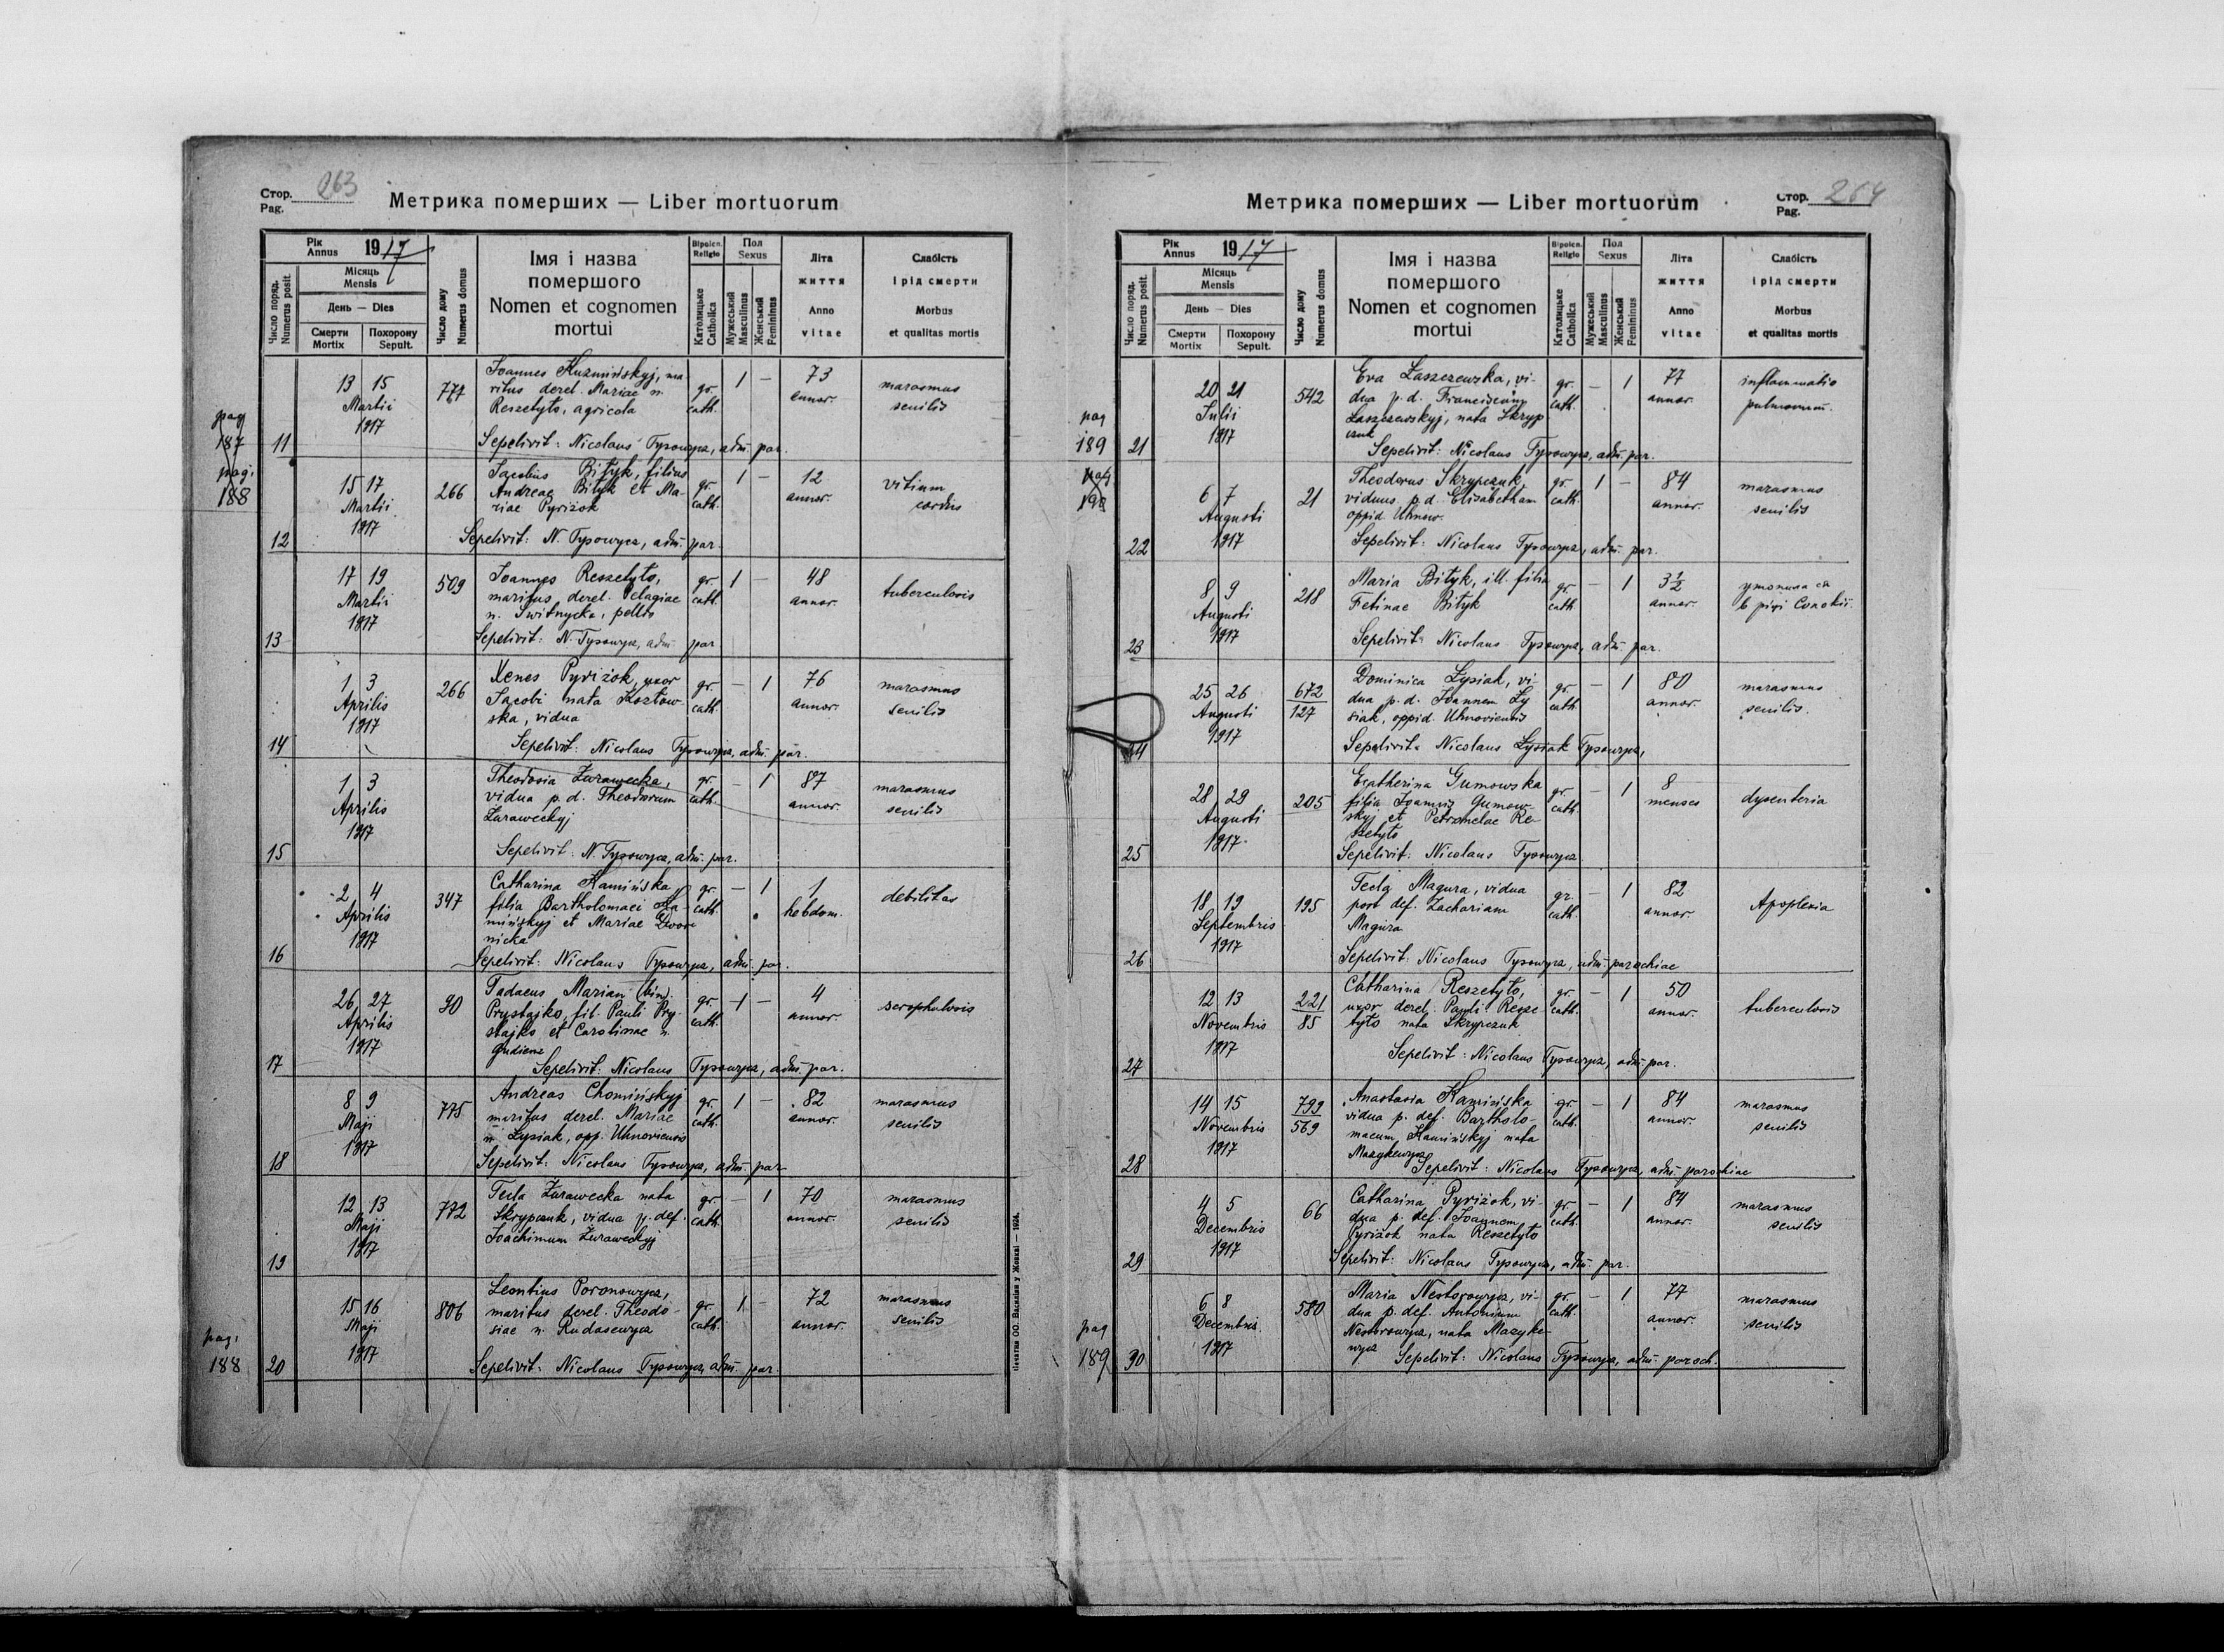 Стор. 263
Pag.
Метрика померших — Liber mortuorum
Рік Annus 1917
Місяць Mensis
День — Dies
Число поряд. Numerus posit.
Смерти Mortix
Похорону Sepult.
Число дому Numerus domus
Імя і назва
помершого
Nomen et cognomen
mortui
Віроісп. Religio
Католицьке Catholica
Пол Sexus
Мужеський Masculinus
Женський Femininus
Літа
життя
Anno
vitae
Слабість
і рід смерти
Morbus
et qualitas mortis
pag
187
pag.
188
11
13 15
Martii
1917
777
Joannes Kuzmińskyj, ma-
ritus derel. Mariae n.
Reszetyło, agricola
gr.
cath.
1 —
73
annor.
marasmus
senilis
Sepelivit: Nicolaus Tysowycz, adm. par.
12
15 17
Martii
1917
266
Jacobus Bityk, filius
Andreae Bityk et Ma-
riae Pyriżok
gr.
cath.
1 —
12
annor.
vitium
cordis
Sepelivit: N. Tysowycz, adm. par.
13
17 19
Martii
1917
509
Joannes Reszetyło,
maritus derel. Pelagiae
n. Switnycka, pellio
gr.
cath.
1 —
48
annor.
tuberculosis
Sepelivit: N. Tysowycz, adm. par
14
1 3
Aprilis
1917
266
Xenes Pyriżok, uxor
Jacobi nata Kozłow-
ska, vidua
gr.
cath.
— 1
76
annor.
marasmus
senilis
Sepelivit: Nicolaus Tysowycz, adm. par.
15
1 3
Aprilis
1917
Theodosia Żurawecka,
vidua p. d. Theodorum
Żuraweckyj
gr.
cath.
— 1
87
annor.
marasmus
senilis
Sepelivit: N. Tysowycz, adm. par.
16
2 4
Aprilis
1917
347
Catharina Kamińska
filia Bartholomaei Ka-
mińskyj et Mariae Dwor-
nicka
gr.
cath.
— 1
1
hebdom.
debilitas
Sepelivit: Nicolaus Tysowycz, adm. par.
17
26 27
Aprilis
1917
30
Tadaeus Marian (bin)
Prystajko, fil. Pauli Pry-
stajko et Carolinae n.
Gudienz
gr.
cath.
1 —
4
annor.
scrophulosis
Sepelivit: Nicolaus Tysowycz, adm. par.
18
8 9
Maji
1917
775
Andreas Chomińskyj
maritus derel. Mariae
n. Łysiak, opp. Uhnoviensis
gr.
cath.
1 —
82
annor.
marasmus
senilis
Sepelivit: Nicolaus Tysowycz, adm. par
19
12 13
Maji
1917
772
Tecla Żurawecka nata
Skrypczuk, vidua p. def.
Joachimum Żuraweckyj
gr.
cath.
— 1
70
annor.
marasmus
senilis
pag.
188
20
15 16
Maji
1917
806
Leontius Poronowycz,
maritus derel. Theodo-
siae n. Rudasewycz
gr.
cath.
1 —
72
annor.
marasmus
senilis
Sepelivit: Nicolaus Tysowycz, adm. par.
Печатня ОО. Василіян у Жовкві — 1924.
Метрика померших — Liber mortuorum
Стор. 264
Pag.
Рік Annus 1917
Місяць Mensis
День — Dies
Число поряд. Numerus posit.
Смерти Mortix
Похорону Sepult.
Число дому Numerus domus
Імя і назва
помершого
Nomen et cognomen
mortui
Віроісп. Religio
Католицьке Catholica
Пол Sexus
Мужеський Masculinus
Женський Femininus
Літа
життя
Anno
vitae
Слабість
і рід смерти
Morbus
et qualitas mortis
pag
189
21
20 21
Julii
1917
542
Eva Łaszczewska, vi-
dua p. d. Franciscum
Łaszczewskyj, nata Skryp
czuk
gr.
cath.
— 1
77
annor.
inflammatio
pulmonum.
Sepelivit: Nicolaus Tysowycz, adm. par.
22
6 7
Augusti
1917
21
Theodorus Skrypczuk,
viduus p. d. Elisabetham
oppid. Uhnow.
gr.
cath.
1 —
84
annor.
marasmus
senilis
Sepelivit: Nicolaus Tysowycz, adm. par.
23
8 9
Augusti
1917
218
Maria Bityk, ill. filia
Fetinae Bityk
gr.
cath.
— 1
3½
annor.
утопила ся
в ріці Солокії.
Sepelivit: Nicolaus Tysowycz, adm. par.
24
25 26
Augusti
1917
672
127
Dominica Łysiak, vi-
dua p. d. Joannem Ły
siak, oppid. Uhnoviensis
gr.
cath.
— 1
80
annor.
marasmus
senilis.
Sepelivit: Nicolaus Łysiak Tysowycz,
25
28 29
Augusti
1917
205
Ecatherina Gumowska
filia Joannis Gumow-
skyj et Petronelae Re-
szetyło
gr.
cath.
— 1
8
menses
dysenteria
Sepelivit: Nicolaus Tysowycz
26
18 19
Septembris
1917
195
Tecla Magura, vidua
post def. Zachariam
Magura
gr.
cath.
— 1
82
annor.
Apoplexia
Sepelivit: Nicolaus Tysowycz, adm. parochiae
27
12 13
Novembris
1917
221
85
Catharina Reszetyło,
uxor derel. Pauli Resze
tyło nata Skrypczuk
gr.
cath.
— 1
50
annor.
tuberculosis
Sepelivit: Nicolaus Tysowycz, adm. par.
28
14 15
Novembris
1917
799
569
Anastasia Kamińska
vidua p. def. Bartholo-
maeum Kamińskyj nata
Mazykewycz
gr.
cath.
— 1
84
annor.
marasmus
senilis
Sepelivit: Nicolaus Tysowycz, adm. parochiae
29
4 5
Decembris
1917
66
Catharina Pyriżok, vi-
dua p. def. Joannem
Pyriżok nata Reszetyło
gr.
cath.
— 1
84
annor.
marasmus
senilis
Sepelivit: Nicolaus Tysowycz, adm. par.
pag
189
30
6 8
Decembris
1917
580
Maria Nestorowycz, vi-
dua p. def. Antonium
Nestorowycz, nata Mazyke-
wycz
gr.
cath.
— 1
77
annor.
marasmus
senilis
Sepelivit: Nicolaus Tysowycz, adm. paroch.